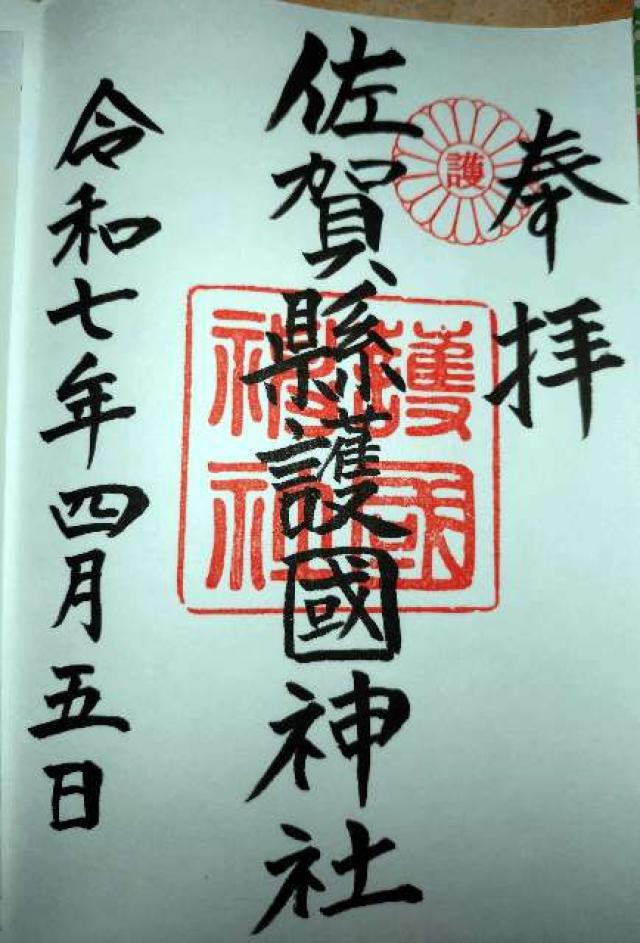 奉拝
護
佐賀縣護國神社
護國神社
令和七年四月五日